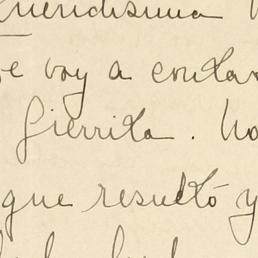 Queridísima
voy a contar
Fierrita. No
que resultó y